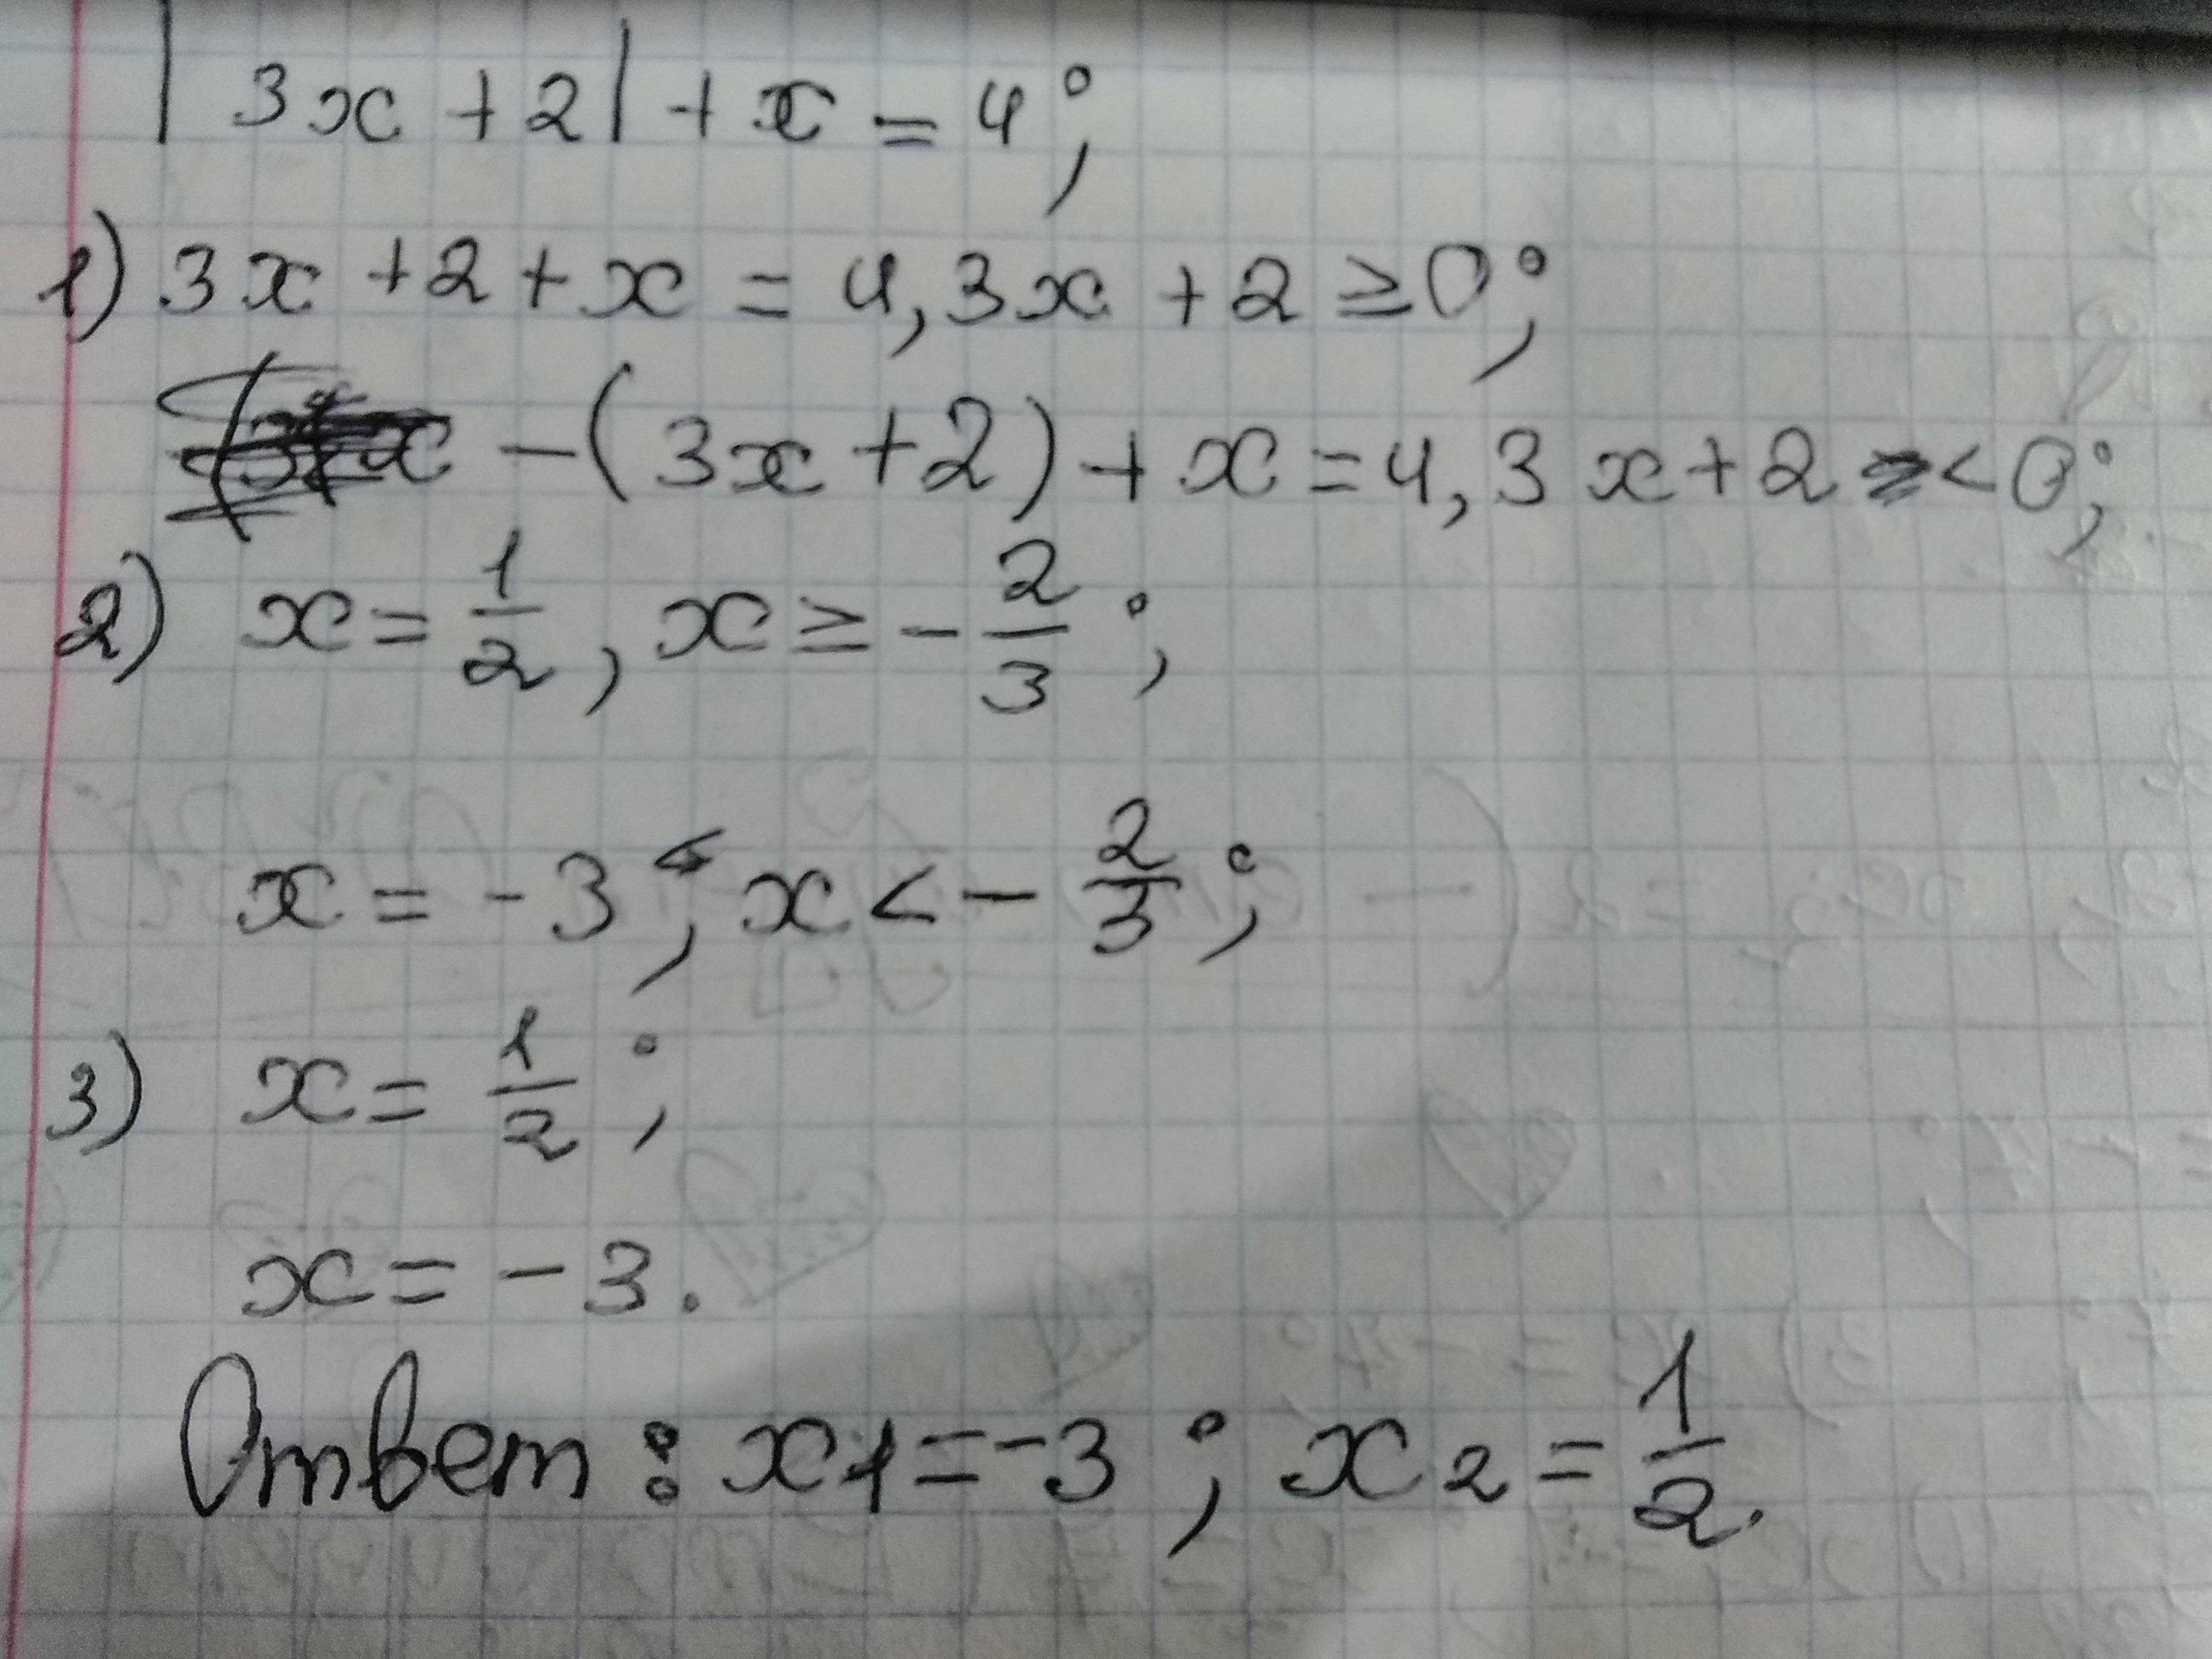 |3x+2|+x=4;
1) 3x+2+x=4, 3x+2≥0;
-(3x+2)+x=4, 3x+2<0;
2) x=1/2, x≥-2/3;
x=-3, x<-2/3;
3) x=1/2;
x=-3.
Ответ: x1=-3; x2=1/2.